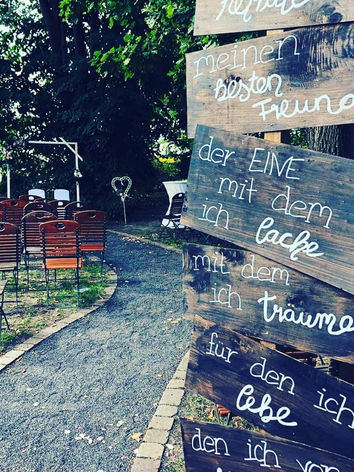 meinen
besten
Freund
der EINE
mit dem
ich lache
mit dem
ich träume
für den ich
lebe
den ich von